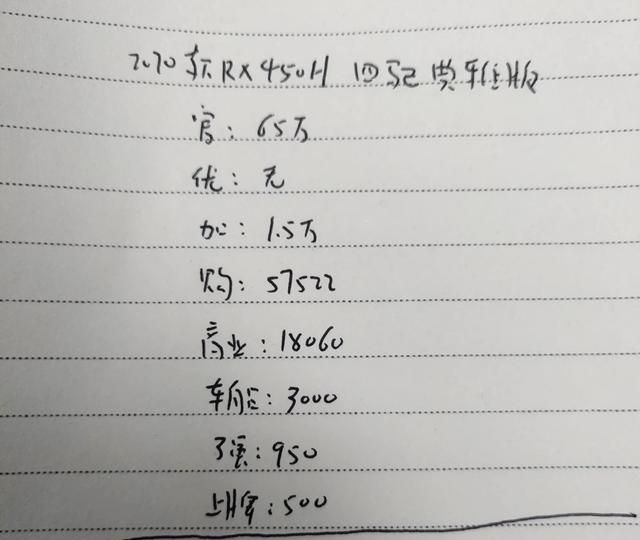 2020款RX450H 四驱典雅版
官: 65万
优: 无
加: 1.5万
购: 57522
商业: 18060
车船: 3000
交强: 950
上牌: 500